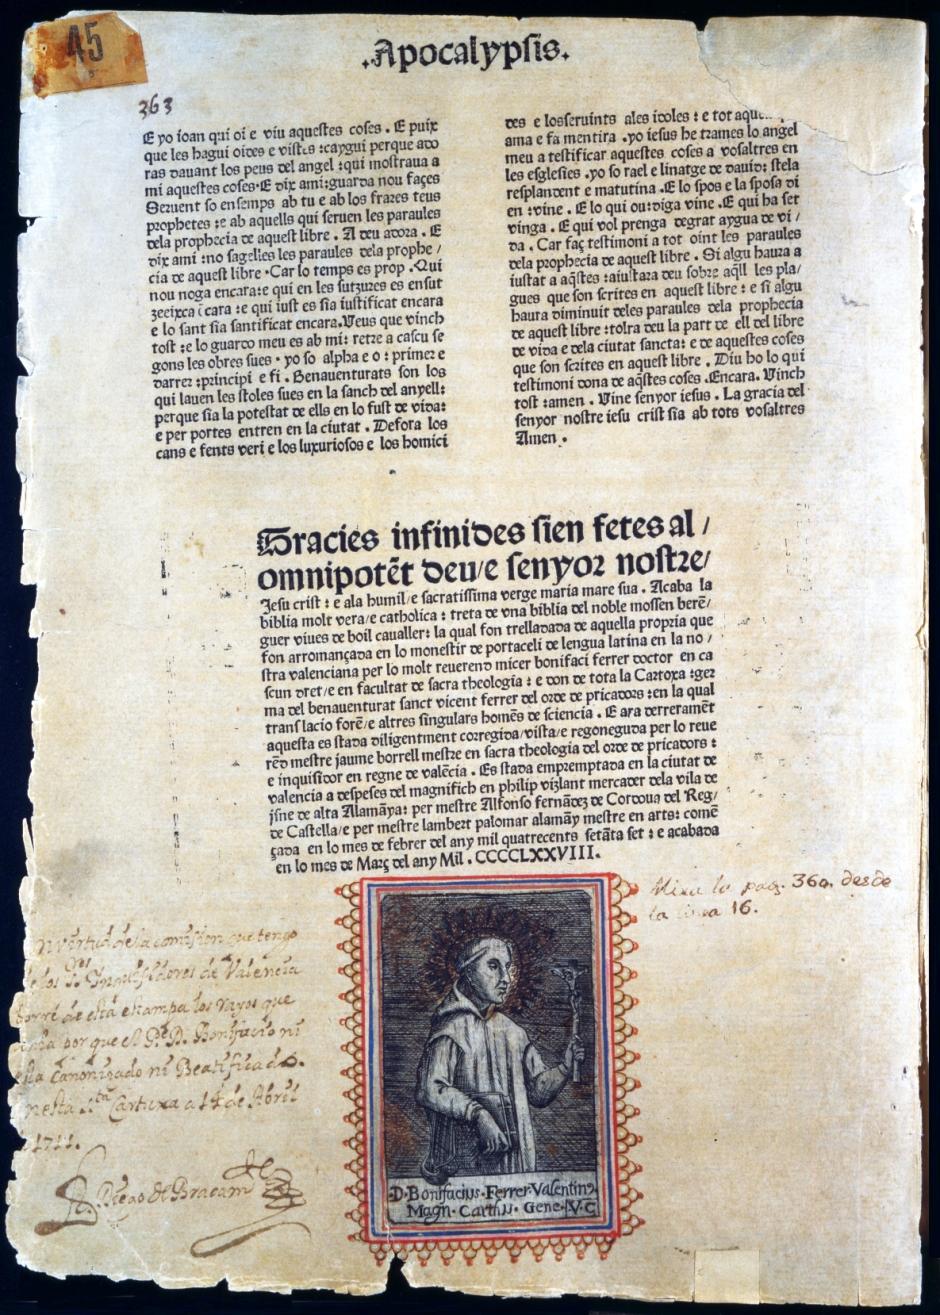 45
.Apocalypsis.
363
E yo ioan qui oi e viu aquestes coses . E puix
que les hagui oides e vistes :caygui perque ado
ras dauant los peus del angel :qui mostraua a
mi aquestes coses. E dix ami:guarda nou façes
Seruent so ensemps ab tu e ab los frares teus
prophetes :e ab aquells qui seruen les paraules
dela prophecia de aquest libre . A deu adora . E
dix ami :no sagelles les paraules dela prophe /
cia de aquest libre . Car lo temps es prop .Qui
nou noga encara:e qui en les sutzures es ensut
zeeixca ẽcara :e qui iust es sia iustificat encara
e lo sant sia santificat encara.Veus que vinch
tost :e lo guardo meu es ab mi: retre a cascu se
gons les obres sues . yo so alpha e o : primer e
darrer :principi e fi . Benauenturats son los
qui lauen les stoles sues en la sanch del anyell:
perque sia la potestat de ells en lo fust de vida:
e per portes entren en la ciutat . Defora los
cans e fents veri e los luxuriosos e los homici
des e losseruints ales idoles : e tot aque
ama e fa mentira .yo iesus he trames lo angel
meu a testificar aquestes coses a vosaltres en
les esglesies .yo so rael e linatge de dauid: stela
resplandent e matutina. E lo spos e la sposa di
en :vine . E lo qui ou:diga vine . E qui ha set
vinga . E qui vol prenga degrat aygua de vi /
da . Car faç testimoni a tot oint les paraules
dela prophecia de aquest libre . Si algu haura a
iustat a aq̃stes :aiustara deu sobre aq̃ll les pla/
gues que son scrites en aquest libre : e si algu
haura diminuit deles paraules dela prophecia
de aquest libre :tolra deu la part de ell del libre
de vida e dela ciutat sancta: e de aquestes coses
que son scrites en aquest libre . Diu ho lo qui
testimoni dona de aq̃stes coses .Encara. Vinch
tost :amen . Vine senyor iesus . La gracia del
senyor nostre iesu crist sia ab tots vosaltres
Amen .
Gracies infinides sien fetes al /
omnipotẽt deu/e senyor nostre/
Jesu crist : e ala humil/e sacratissima verge maria mare sua . Acaba la
biblia molt vera/e catholica : treta de vna biblia del noble mossen berẽ/
guer viues de boil caualler: la qual fon trelladada de aquella propria que
fon arromançada en lo monestir de portaceli de lengua latina en la no /
stra valenciana per lo molt reuerend micer bonifaci ferrer doctor en ca
scun dret/e en facultat de sacra theologia : e don de tota la Cartoxa :ger
ma del benauenturat sanct vicent ferrer del orde de pricadors :en la qual
translacio forẽ/e altres singulars homẽs de sciencia . E ara derreramẽt
aquesta es stada diligentment corregida/vista/e regoneguda per lo reue
rẽd mestre jaume borrell mestre en sacra theologia del orde de pricadors :
e inquisidor en regne de valẽcia . Es stada empremptada en la ciutat de
valencia a despeses del magnifich en philip vizlant mercader dela vila de
jsne de alta Alamãya: per mestre Alfonso fernãdez de Cordoua del Reg/
de Castella/e per mestre lambert palomar alamãy mestre en arts: comẽ
çada en lo mes de febrer del any mil quatrecents setãta set : e acabada
en lo mes de Març del any Mil . CCCCLXXVIII.
Mira la pag. 360. desde
la linea 16.
n virtud de la comision que tengo
de los Sres Inquisidores de Valencia
borrè de esta estampa los rayos que
tenia por que el Pe D. Bonifacio ni
esta Canonizado ni Beatificado.
nesta Sta Cartuxa a 14 de Abril
1711.
D. Bonifacius . Ferrer . Valentinꝰ
Magn . Carthu . Gene . V. C